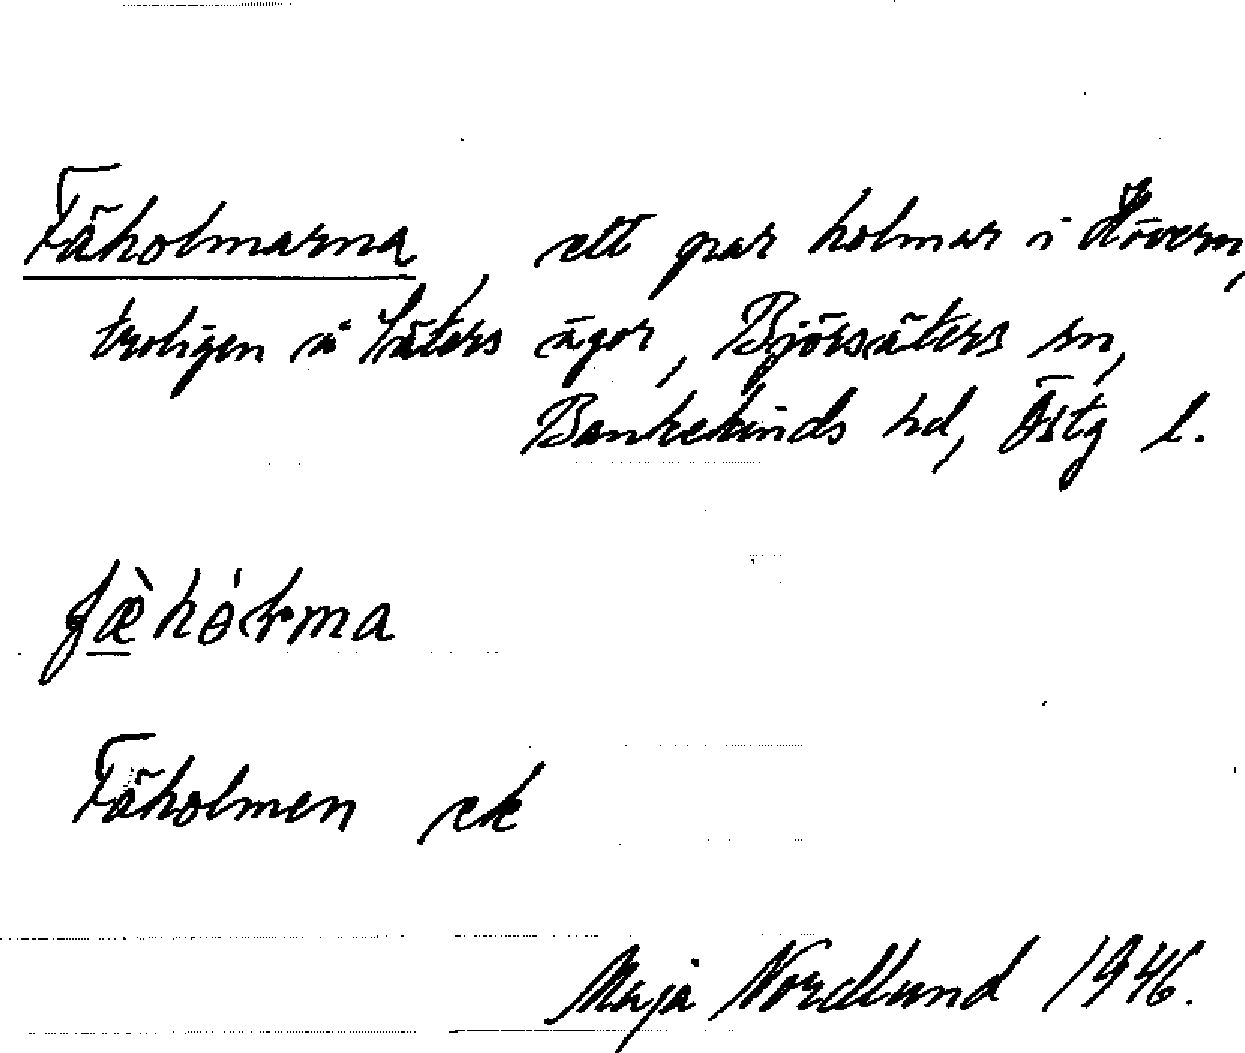 Fäholmarna, ett par holmar i Hövern,
troligen å Säters ägor, Björsäters sn,
Bankekinds hd, Östg l.
fæ̀hólma
Fäholmen ek
Maja Nordlund 1946.